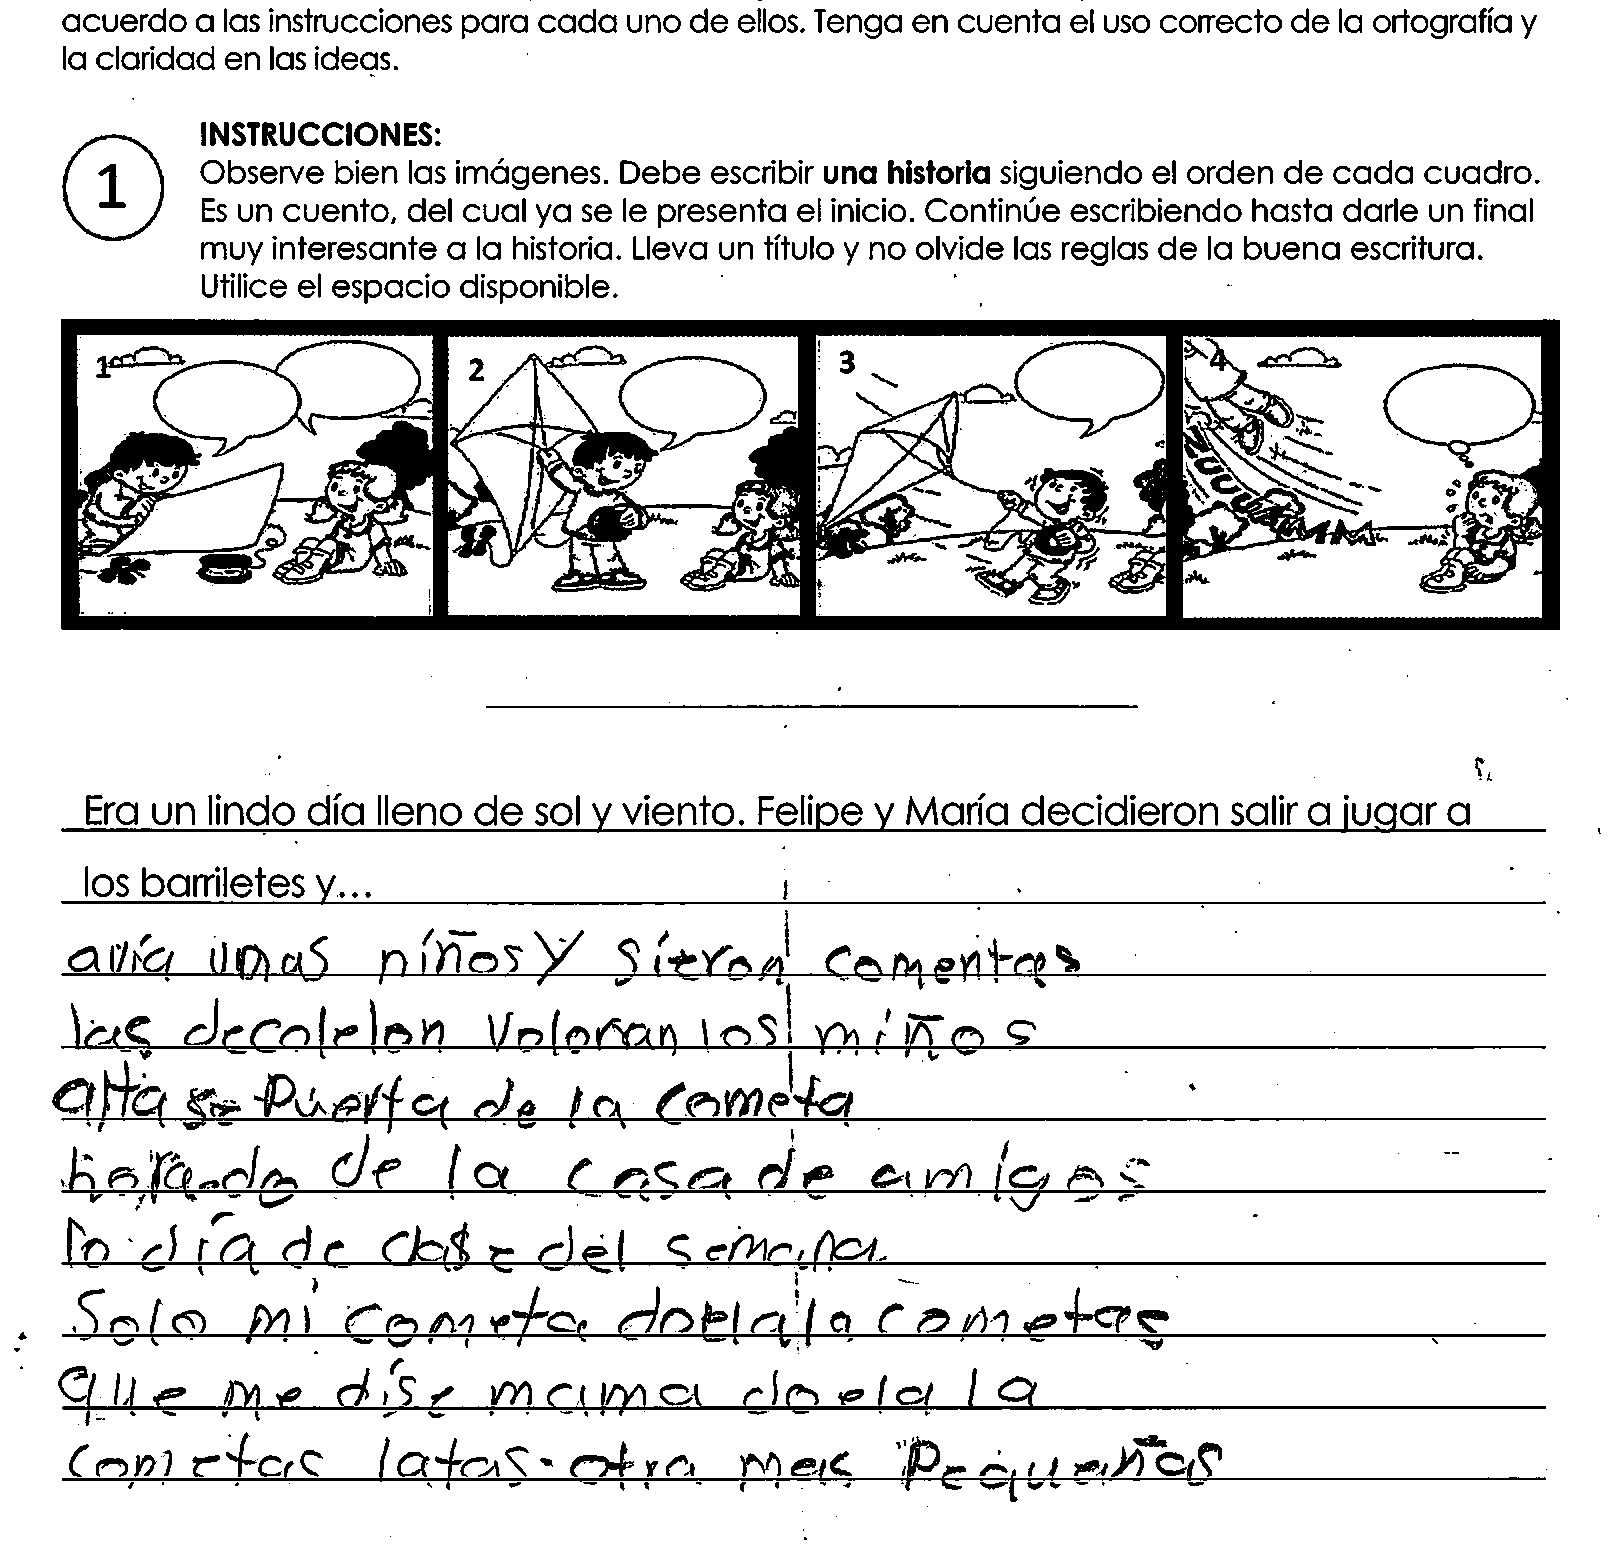 acuerdo a las instrucciones para cada uno de ellos. Tenga en cuenta el uso correcto de la ortografía y
la claridad en las ideas.
1
INSTRUCCIONES:
Observe bien las imágenes. Debe escribir una historia siguiendo el orden de cada cuadro.
Es un cuento, del cual ya se le presenta el inicio. Continúe escribiendo hasta darle un final
muy interesante a la historia. Lleva un título y no olvide las reglas de la buena escritura.
Utilice el espacio disponible.
1 2 3 4
Era un lindo día lleno de sol y viento. Felipe y María decidieron salir a jugar a
los barriletes y...
avía unas niños y sieron comentas
las decolelon voloran los niños
alta puerta de la cometa
de la casa de amigos
lo día de clase del semana
Solo mi cometa doela la cometas
que me dise mama doela la
cometas latas. otra mas Pequeñas